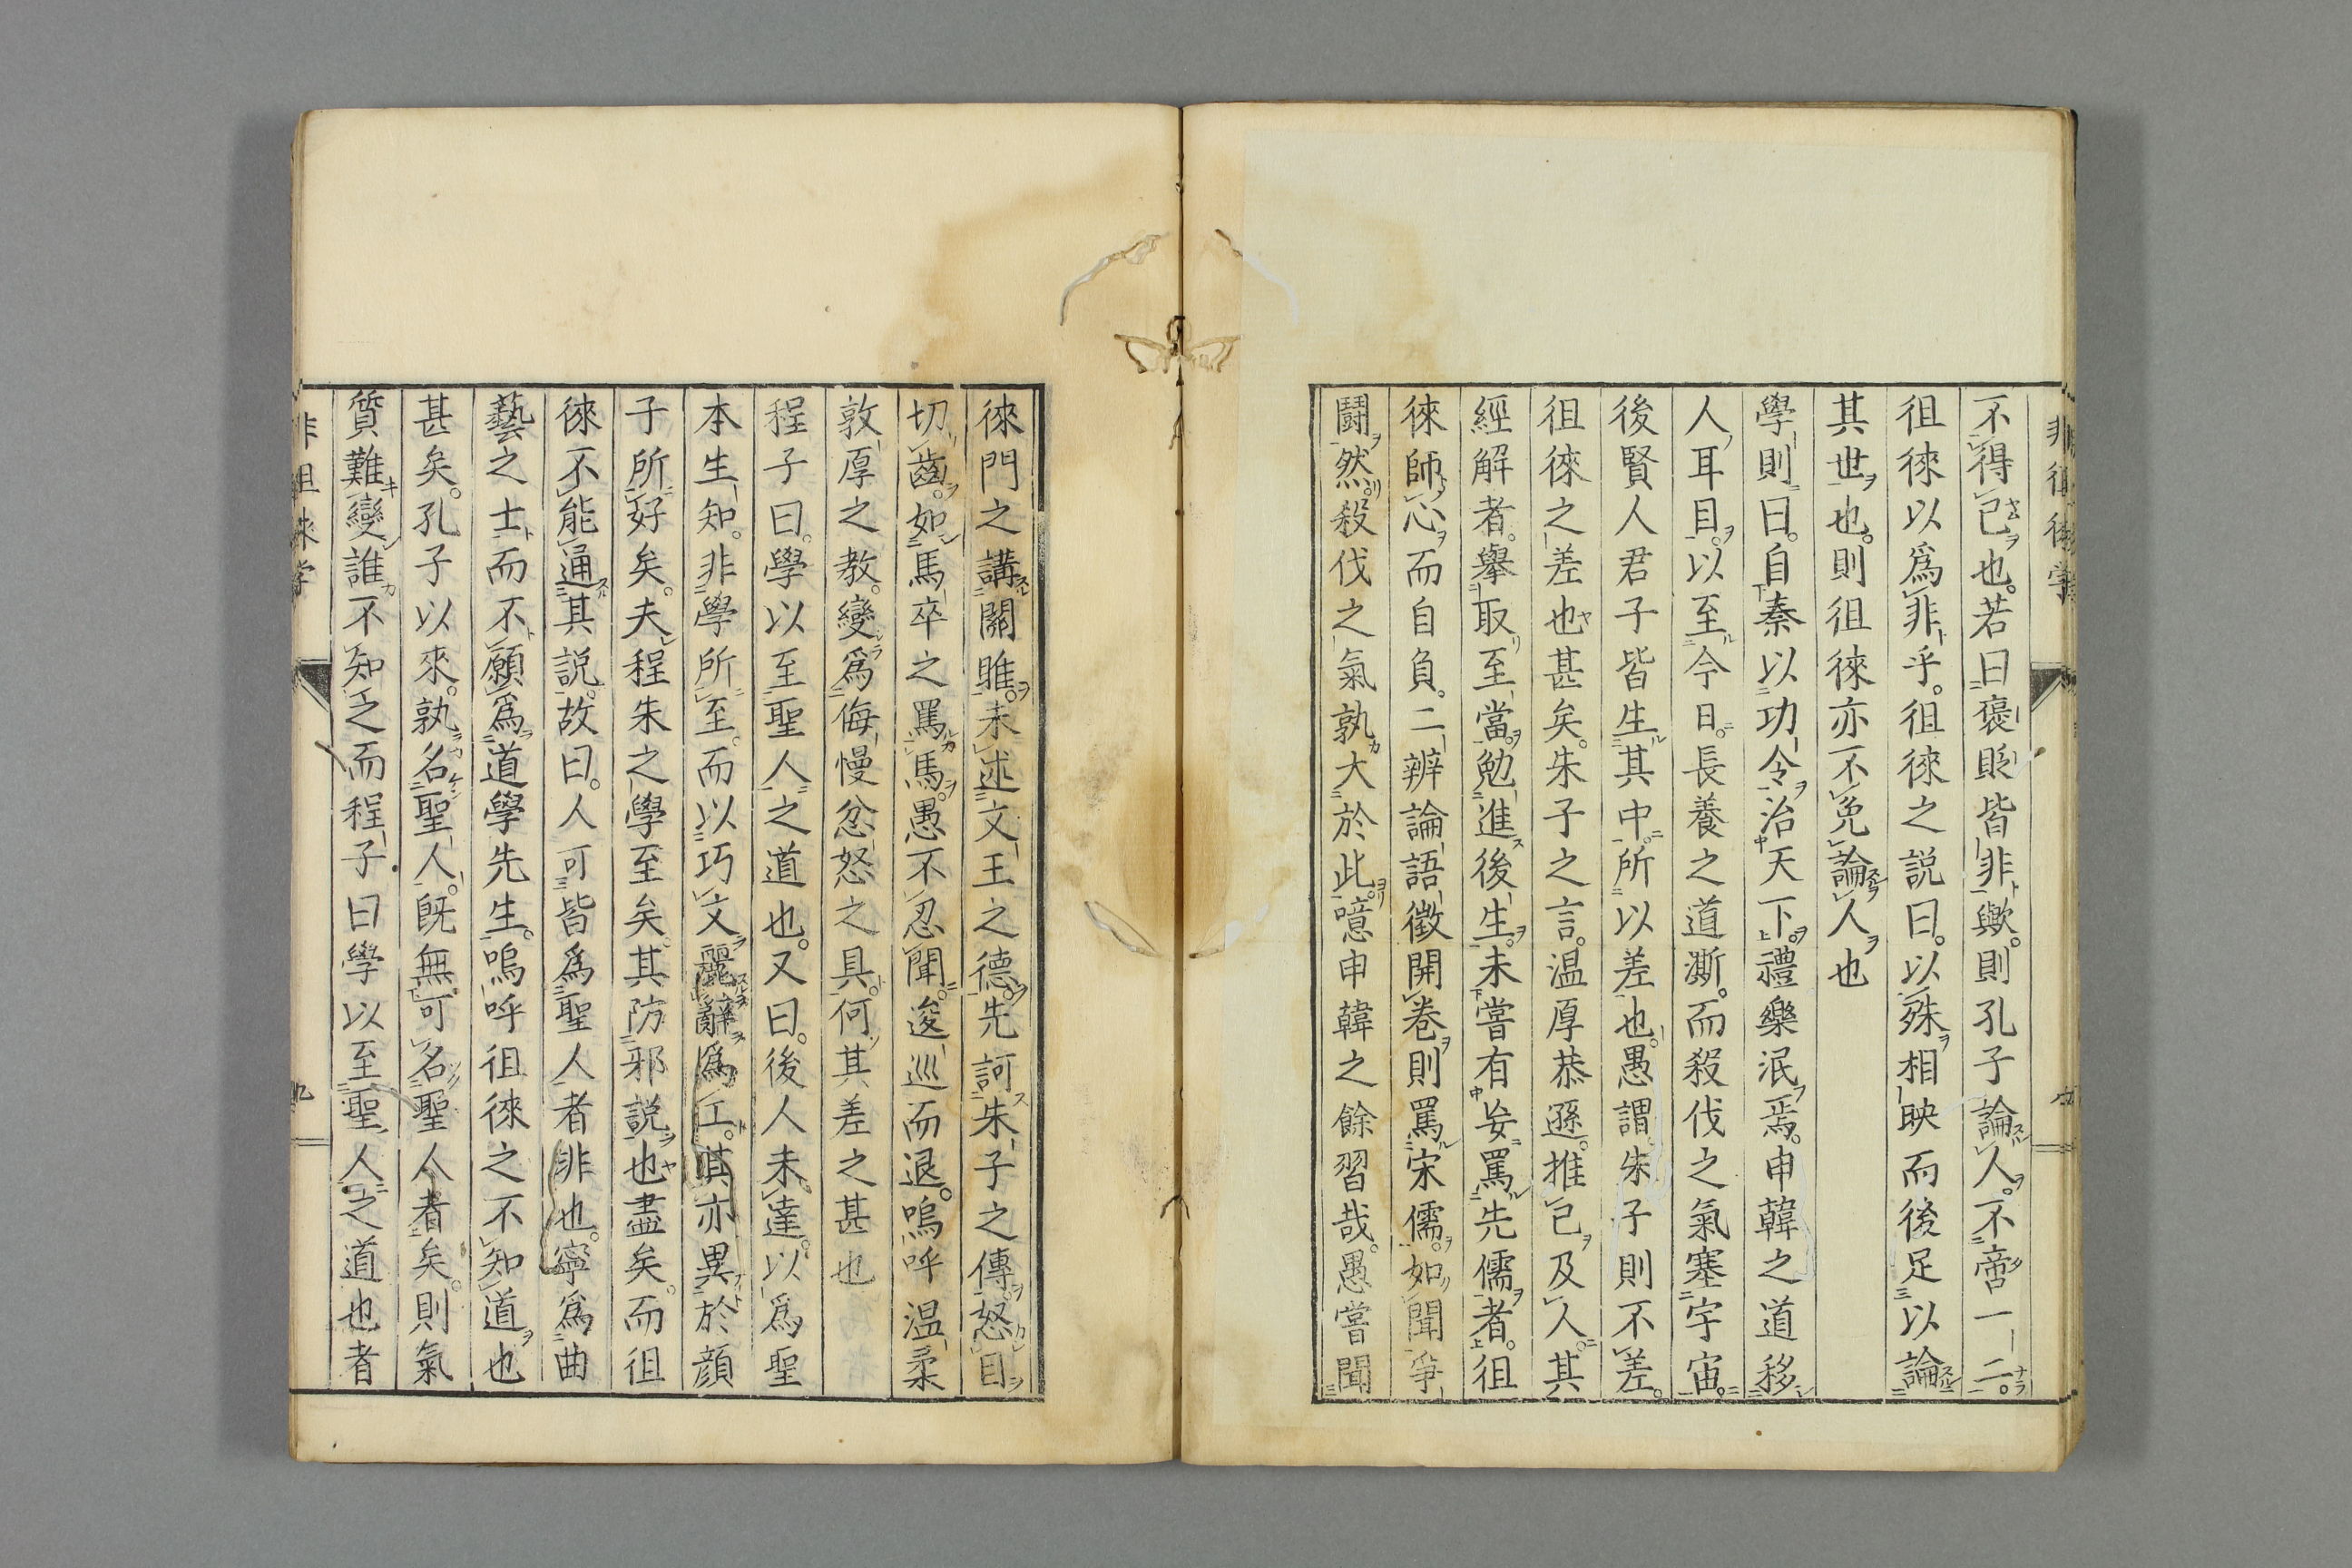 不得已也。若曰褒貶皆非歟。則孔子論人。不啻一二。
徂徠以爲非乎。徂徠之説曰。以殊相映而後足以論
其世也。則徂徠亦不免論人也
學則曰。自秦以功令治天下。禮樂泯焉。申韓之道移
人耳目。以至今日。長養之道澌。而殺伐之氣塞宇宙。
後賢人君子皆生其中。所以差也。愚謂朱子則不差。
徂徠之差也甚矣。朱子之言。温厚恭遜。推己及人。其
經解者。擧取至當。勉進後生。未嘗有妄罵先儒者。徂
徠師心而自負。二辨論語徴開卷則罵宋儒。如聞爭
鬪然。殺伐之氣孰大於此。噫申韓之餘習哉。愚嘗聞
徠門之講關雎。未述文王之德。先訶朱子之傳。怒目
切齒。如馬卒之罵馬。愚不忍聞。逡巡而退。嗚呼温柔
敦厚之教。變爲侮慢忿怒之具。何其差之甚也
程子曰。學以至聖人之道也。又曰。後人未達。以爲聖
本生知。非學所至。而以巧文麗辭爲工。其亦異於顔
子所好矣。夫程朱之學至矣。其防邪説也盡矣。而徂
徠不能通其説。故曰。人可皆爲聖人者非也。寧爲曲
藝之士而不願爲道學先生。嗚呼徂徠之不知道也
甚矣。孔子以來。孰名聖人。既無可名聖人者矣。則氣
質難變誰不知之而程子曰學以至聖人之道也者